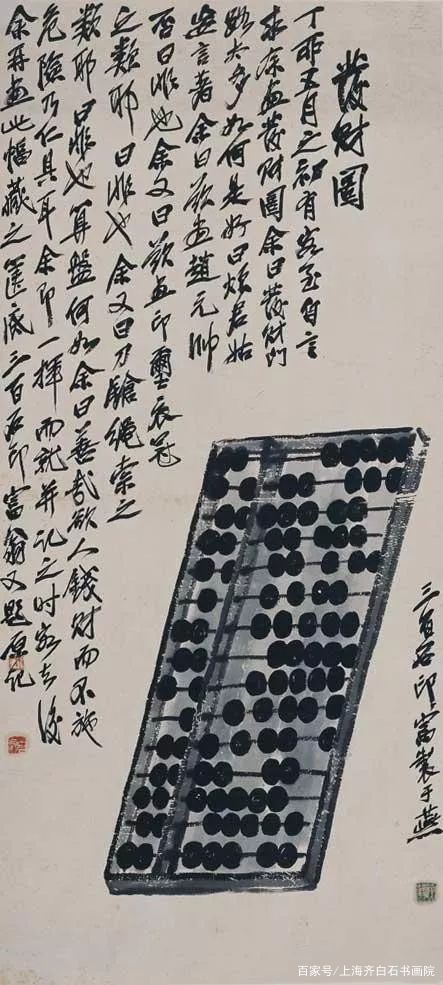 發財圖
丁卯五月之初有客至自言
求余畫發財圖余曰發財門
路太多如何是好曰煩君姑
妄言著余曰欲畫趙元帥
否曰非也余又曰欲畫印璽衣冠
之類耶曰非也余又曰刀鎗繩索之
類耶曰非也算盤何如余曰善哉欲人錢財而不施
危險乃仁具耳余即一揮而就并記之時客去後
余再畫此幅藏之篋底三百石印富翁又題原記
三百石印富製于燕
百家号/上海齐白石书画院